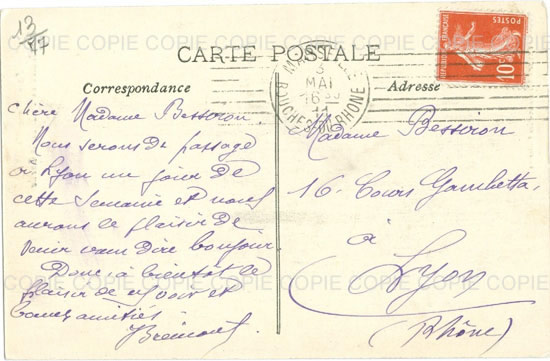 13/77
COPIE COPIE COPIE COPIE COPIE COPIE
CARTE POSTALE
MARSEILLE
MAI
BOUCHES-DU-RHÔNE
POSTES
REPUBLIQUE FRANÇAISE
10c
Correspondance
Adresse
Chère Madame Besseron.
Nous serons de passage
à Lyon un jour de
cette semaine et nous
aurons le plaisir de
venir vous dire bonjour
Donc à bientôt le
plaisir de vous voir et
bonnes amitiés
Madame Besseron
16 Cours Gambetta
à
Lyon
(Rhône)
COPIE COPIE COPIE COPIE COPIE COPIE
COPIE COPIE COPIE COPIE COPIE COPIE